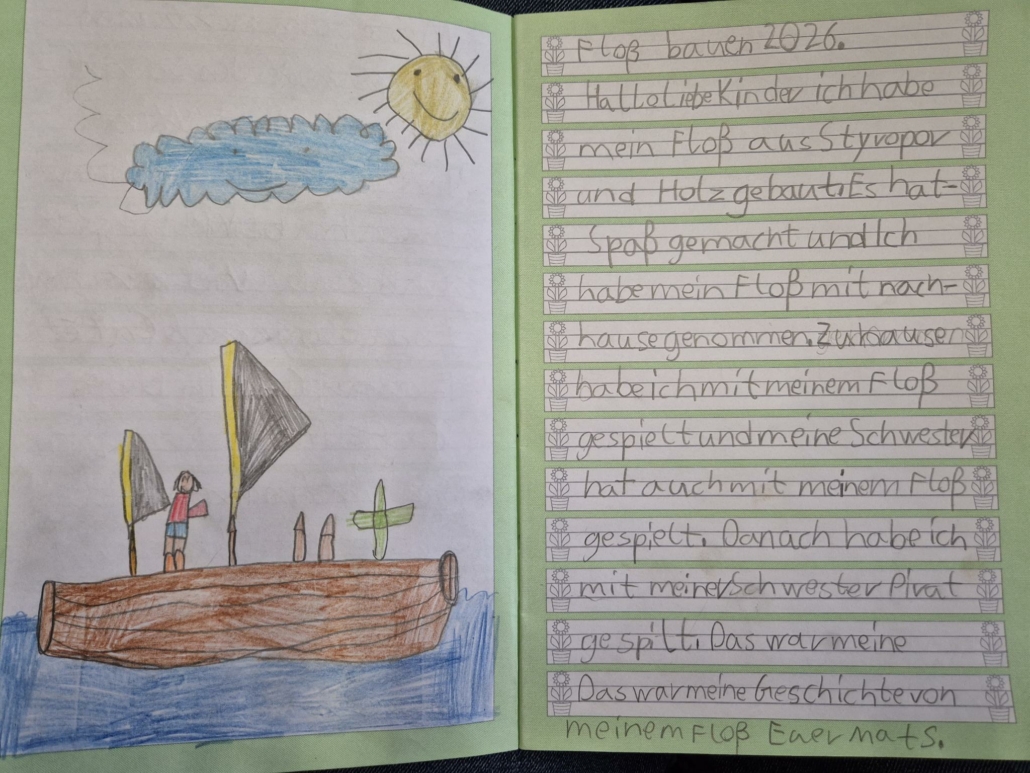 Floß bauen 2026.
Hallo Liebe Kinder ich habe
mein Floß aus Styropor
und Holz gebaut. Es hat-
Spaß gemacht und Ich
habe mein Floß mit nach-
hause genommen. Zuhausen
habe ich mit meinem Floß
gespielt und meine Schwester
hat auch mit meinem Floß
gespielt. Danach habe ich
mit meiner Schwester Pirat
gespilt. Das war meine
Das war meine Geschichte von
meinem Floß Euer Mats.